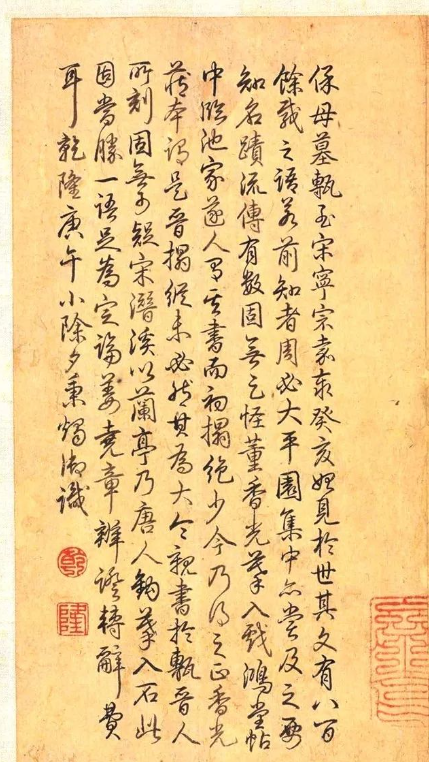 保母墓甎至宋寧宗嘉泰癸亥始見於世其文有八百
餘載之語若前知者周必大平園集中亦嘗及之要
知名蹟流傳有數固無足怪董香光摹入戲鴻堂帖
中臨池家遂人習其書而初搨絕少今乃得之正香光
藏本謂是晉搨縱未必然其為大令親書於甎晉人
所刻固無可疑宋潛溪以蘭亭乃唐人鉤摹入石此
固當勝一語足為定論姜堯章辨證轉辭費
耳乾隆庚午小除夕秉燭御識
乾
隆